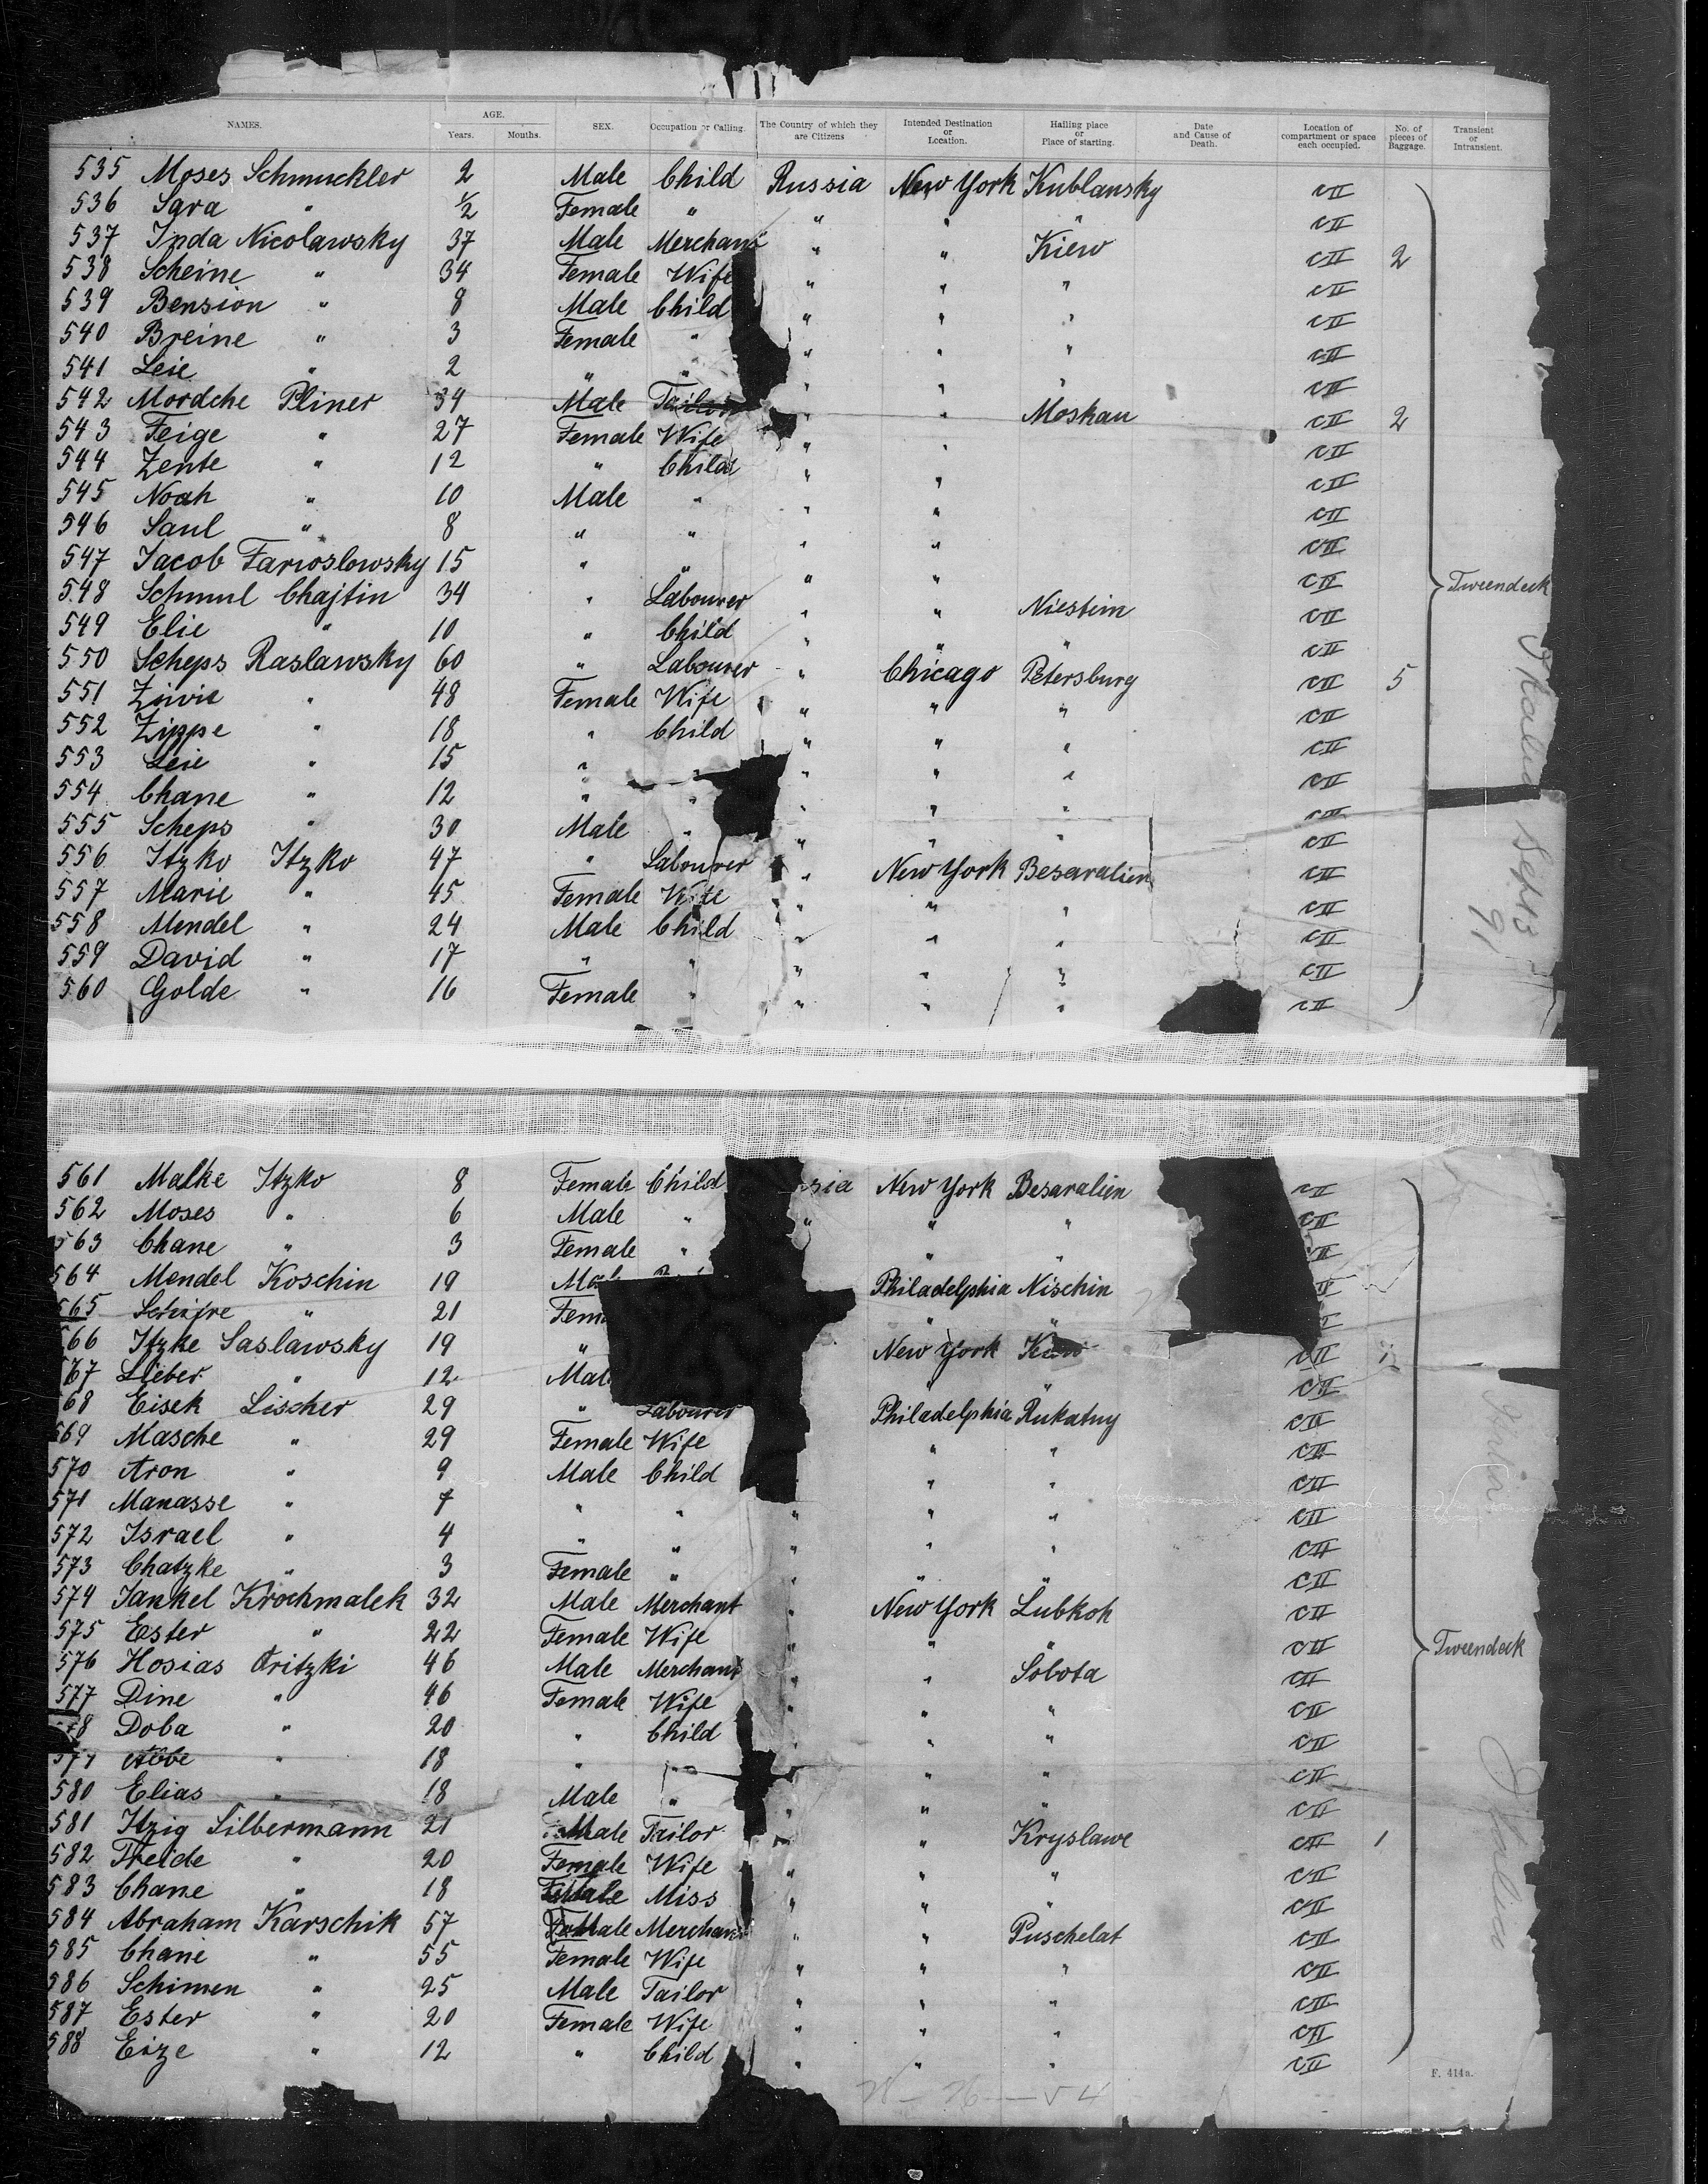 NAMES. AGE. Years. Months. SEX. Occupation or Calling. The Country of which they are Citizens Intended Destination or Location. Hailing place or Place of starting. Date and Cause of Death. Location of compartment or space each occupied. No. of pieces of Baggage. Transient or Intransient.
535 Moses Schmuckler 2 Male Child Russia New York Kublansky CII
536 Sara " ½ Female " " " " CII
537 Inda Nicolawsky 37 Male Merchant " " Kiew CII 2
538 Scheine " 34 Female Wife " " " CII
539 Bension " 8 Male Child " " " CII
540 Breine " 3 Female " " " " CII
541 Leie " 2 " " " " " CII
542 Mordche Pliner 34 Male Tailor " " Moskau CII 2
543 Feige " 27 Female Wife " " CII
544 Zente " 12 " Child " " CII
545 Noah " 10 Male " " " CII
546 Saul " 8 " " " " CII
547 Jacob Faroslowsky 15 " " " " CII
548 Schmul Chajtin 34 " Labourer " " Niestim CII
549 Elie " 10 " Child " " " CII
550 Scheps Raslawsky 60 " Labourer " Chicago Petersburg CII 5
551 Ziwie " 48 Female Wife " " " CII
552 Zippe " 18 " Child " " " CII
553 Leie " 15 " " " " CII
554 Chane " 12 " " " " " CII
555 Scheps " 30 Male " " " " CII
556 Itzko Itzko 47 " Labourer " New York Besaralien CII
557 Marie " 45 Female Wife " " " CII
558 Mendel " 24 Male Child " " " CII
559 David " 17 " " " " " CII
560 Golde " 16 Female " " " " CII
Tweendeck
561 Malke Itzko 8 Female Child sia New York Besaralien CII
562 Moses " 6 Male " " " " CII
563 Chane " 3 Female " " " CII
564 Mendel Koschin 19 Philadelphia Nischin II
565 " 21 Fem " "
566 Itzke Saslawsky 19 " New York CII 1
567 Lieber " 12 Mal " " CII
568 Eisek Lischer 29 " Labourer Philadelphia Rukatny CII
569 Masche " 29 Female Wife " " CII
570 Aron " 9 Male Child " " CII
571 Manasse " 7 " " " " " CII
572 Israel " 4 " " " " " CII
573 Chatzke " 3 Female " " " " CII
574 Jankel Krochmalek 32 Male Merchant " New York Lubkoh CII
575 Ester " 22 Female Wife " " " CII
576 Hosias Oritzki 46 Male Merchant " " Sobota CII
577 Dine " 46 Female Wife " " " CII
578 Doba " 20 " Child " " CII
579 Abbe " 18 " " " " CII
580 Elias " 18 Male " " " " CII
581 Itzig Silbermann 21 Male Tailor " " Kryslawe CII 1
582 Freide " 20 Female Wife " " " CII
583 Chane " 18 Female Miss " " " CII
584 Abraham Karschik 57 Male Merchant " " Puschelat CII
585 Chane " 55 Female Wife " " " CII
586 Schimen " 25 Male Tailor " " " CII
587 Ester " 20 Female Wife " " " CII
588 Eize " 12 " Child " " " CII
Tweendeck
F. 414a.